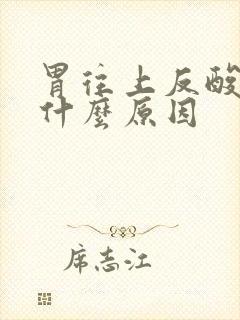 胃往上反酸
什麼原因
席志江